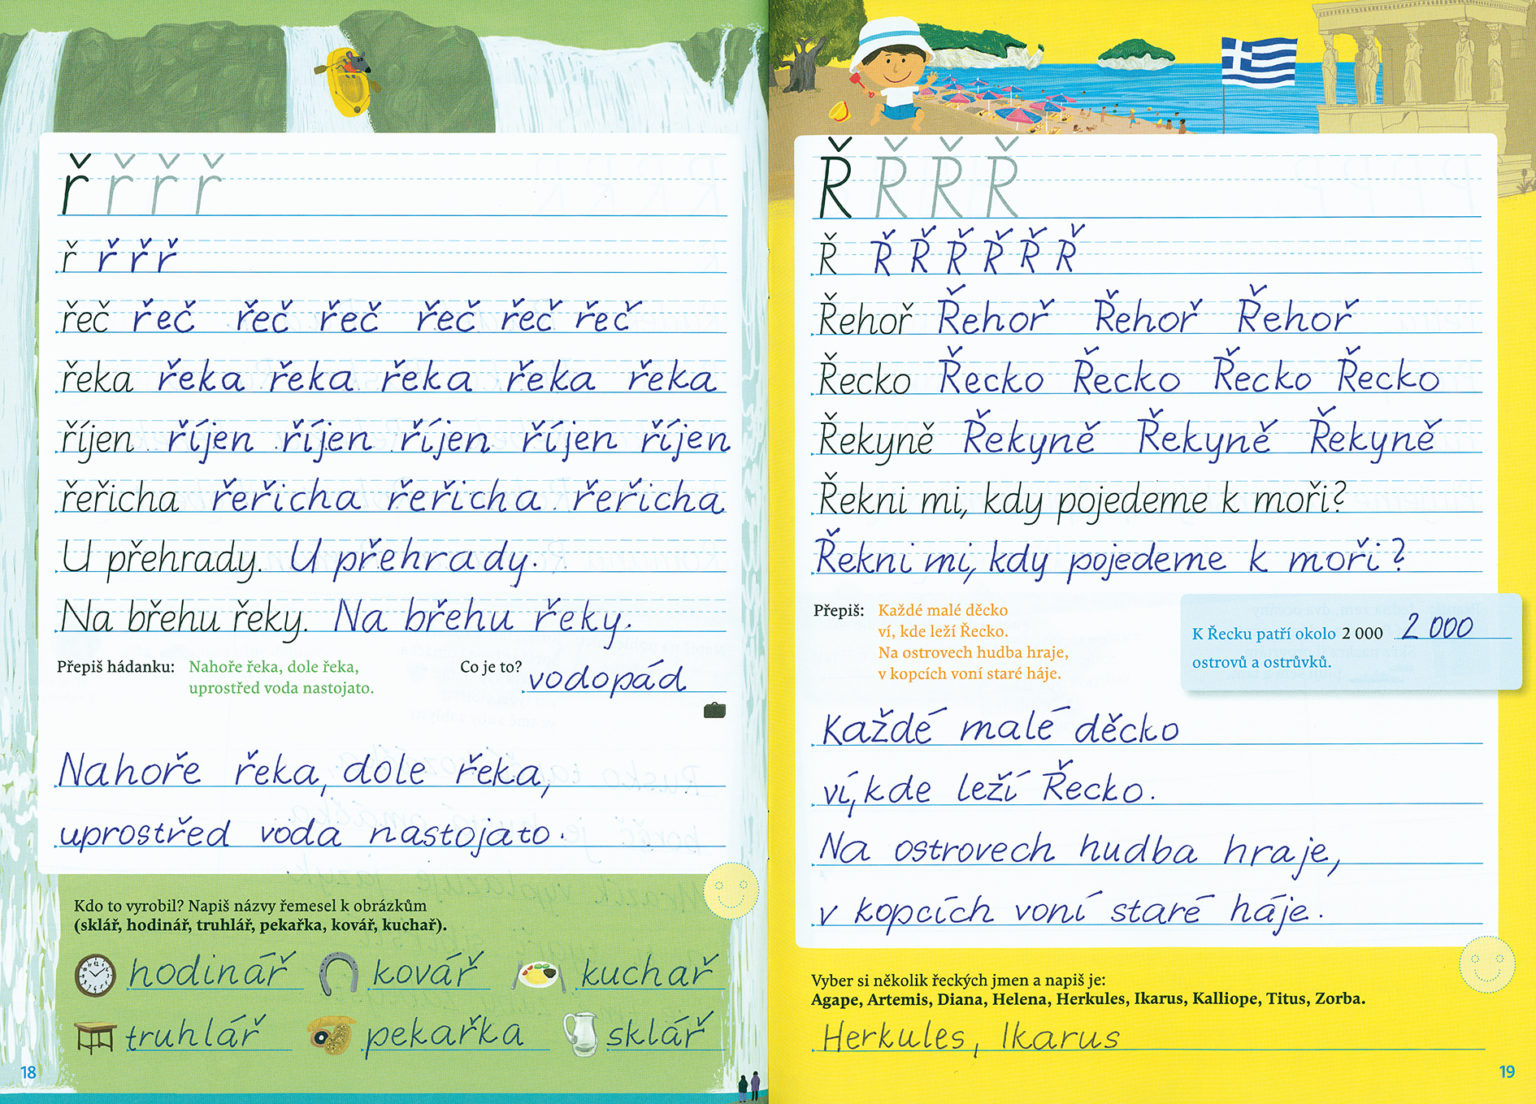 ř ř ř ř
ř ř ř ř
řeč řeč řeč řeč řeč řeč řeč
řeka řeka řeka řeka řeka řeka
říjen říjen říjen říjen říjen říjen
řeřicha řeřicha řeřicha řeřicha
U přehrady. U přehrady.
Na břehu řeky. Na břehu řeky.
Přepiš hádanku: Nahoře řeka, dole řeka,
uprostřed voda nastojato.
Co je to? vodopád
Nahoře řeka, dole řeka,
uprostřed voda nastojato.
Kdo to vyrobil? Napiš názvy řemesel k obrázkům
(sklář, hodinář, truhlář, pekařka, kovář, kuchař).
hodinář kovář kuchař
truhlář pekařka sklář
18
Ř Ř Ř Ř
Ř Ř Ř Ř Ř Ř Ř
Řehoř Řehoř Řehoř Řehoř
Řecko Řecko Řecko Řecko Řecko
Řekyně Řekyně Řekyně Řekyně
Řekni mi, kdy pojedeme k moři?
Řekni mi, kdy pojedeme k moři?
Přepiš: Každé malé děcko
ví, kde leží Řecko.
Na ostrovech hudba hraje,
v kopcích voní staré háje.
K Řecku patří okolo 2 000 2 000
ostrovů a ostrůvků.
Každé malé děcko
ví, kde leží Řecko.
Na ostrovech hudba hraje,
v kopcích voní staré háje.
Vyber si několik řeckých jmen a napiš je:
Agape, Artemis, Diana, Helena, Herkules, Ikarus, Kalliope, Titus, Zorba.
Herkules, Ikarus
19